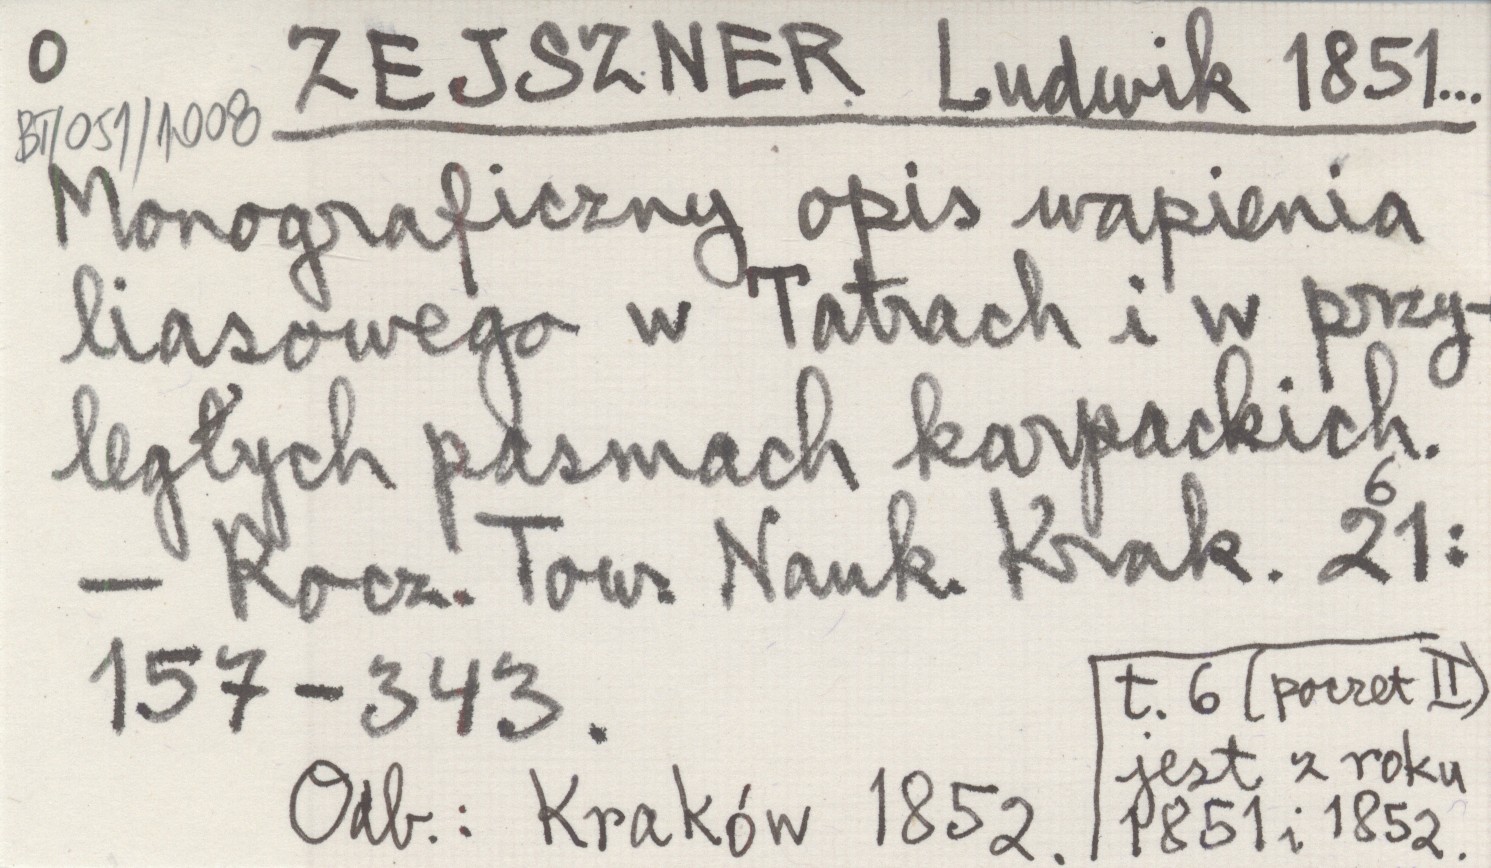 O ZEJSZNER Ludwik 1851...
BT/051/1008
Monograficzny opis wapienia
liasowego w Tatrach i w przy-
ległych pasmach karpackich.
6
— Rocz. Tow. Nauk. Krak. 21:
157-343.
t. 6 (poczet II)
jest z roku
1851 i 1852.
Odb.: Kraków 1852.